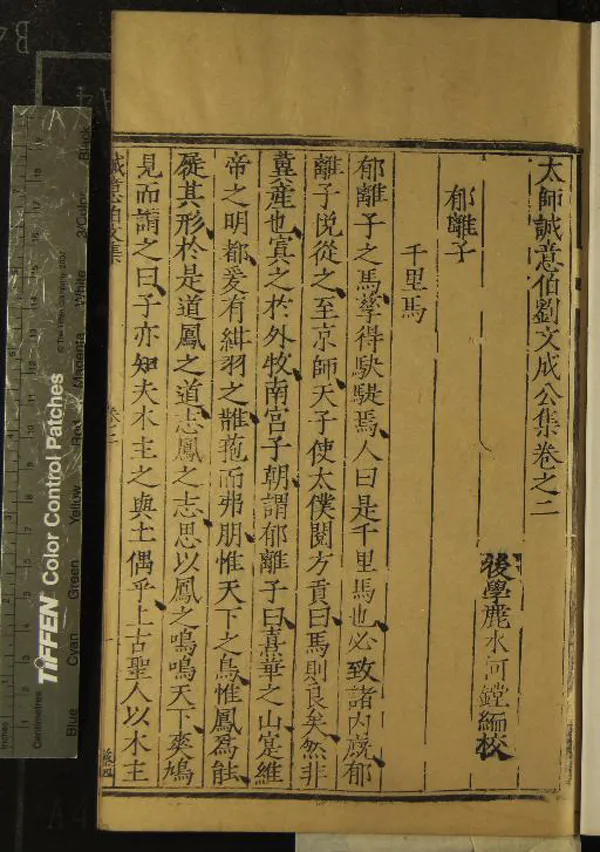 太師誠意伯劉文成公集卷之二
後學麗水何鏜編校
郁離子
千里馬
郁離子之馬孳得駃騠焉人曰是千里馬也必致諸內廐郁
離子悅從之至京師天子使太僕閱方貢曰馬則良矣然非
冀產也寘之於外牧南宮子朝謂郁離子曰熹華之山寔維
帝之明都爰有紺羽之鵲菢而弗朋惟天下之鳥惟鳳爲能
屣其形於是道鳳之道志鳳之志思以鳳之鳴鳴天下奭鳩
見而謂之曰子亦知夫木主之與土偶乎上古聖人以木主
誠意伯文集
卷二
TIFFEN Color Control Patches
© The Tiffen Company, 2007
Blue
Cyan
Green
Yellow
Red
Magenta
White
3/Color
Black
Inches
Centimetres